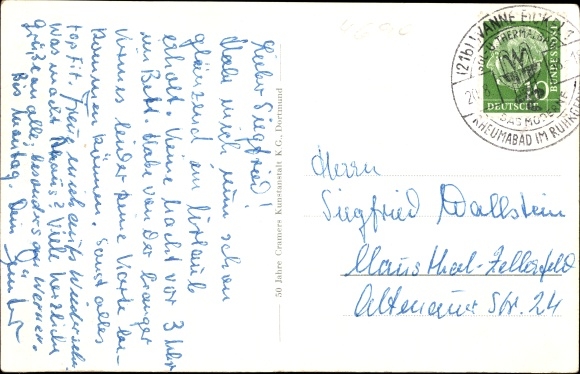 Lieber Siegfried!
Habe mich nun schon
glänzend im Urlaub
erholt. Keine Nacht vor 3 Uhr
im Bett. Habe von der Cranger
Kirmes leider keine Karte be-
kommen können. Sonst alles
top fit. Freue mich aufs Wiedersehn.
Was macht Klaus? Viele herzliche
Grüße an alle, besonders an Werner.
Bis Montag. Dein
Günter
50 Jahre Cramers Kunstanstalt K.G., Dortmund
(21b) WANNE-EICKEL 1
DAS MODERNE
RHEUMABAD IM RUHRGEBIET
10
DEUTSCHE
BUNDESPOST
Herrn
Siegfried Wallstein
Clausthal-Zellerfeld
Altenauer Str. 24